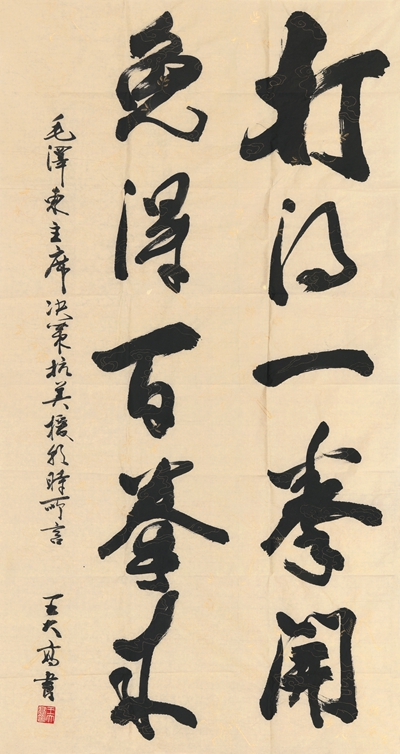 打得一拳開
免得百拳来
毛澤東主席决策抗美援朝時所言
王大高書